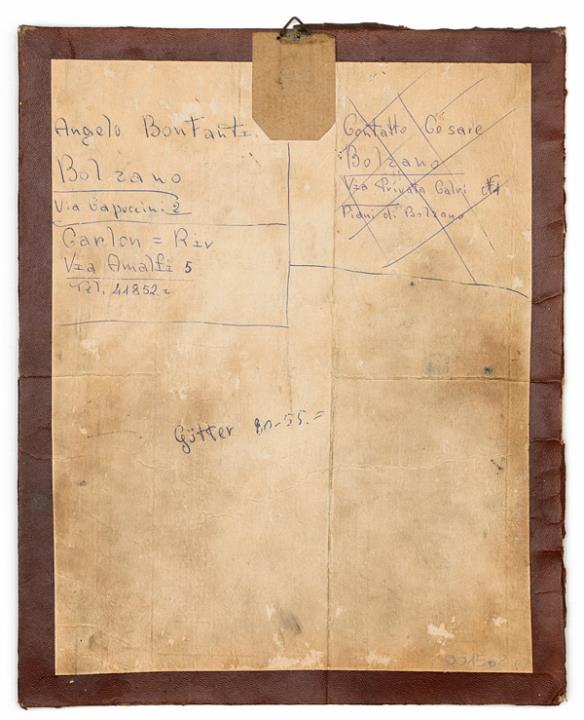 Angelo Bontanti
Bolzano
Via Capuccini 2
Carlon = Riv
Via Amalfi 5
Tel. 41852.=
Contatto Cesare
Bolzano
Via Privata Calvi
Piani di Bolzano
Götter 80-55.=